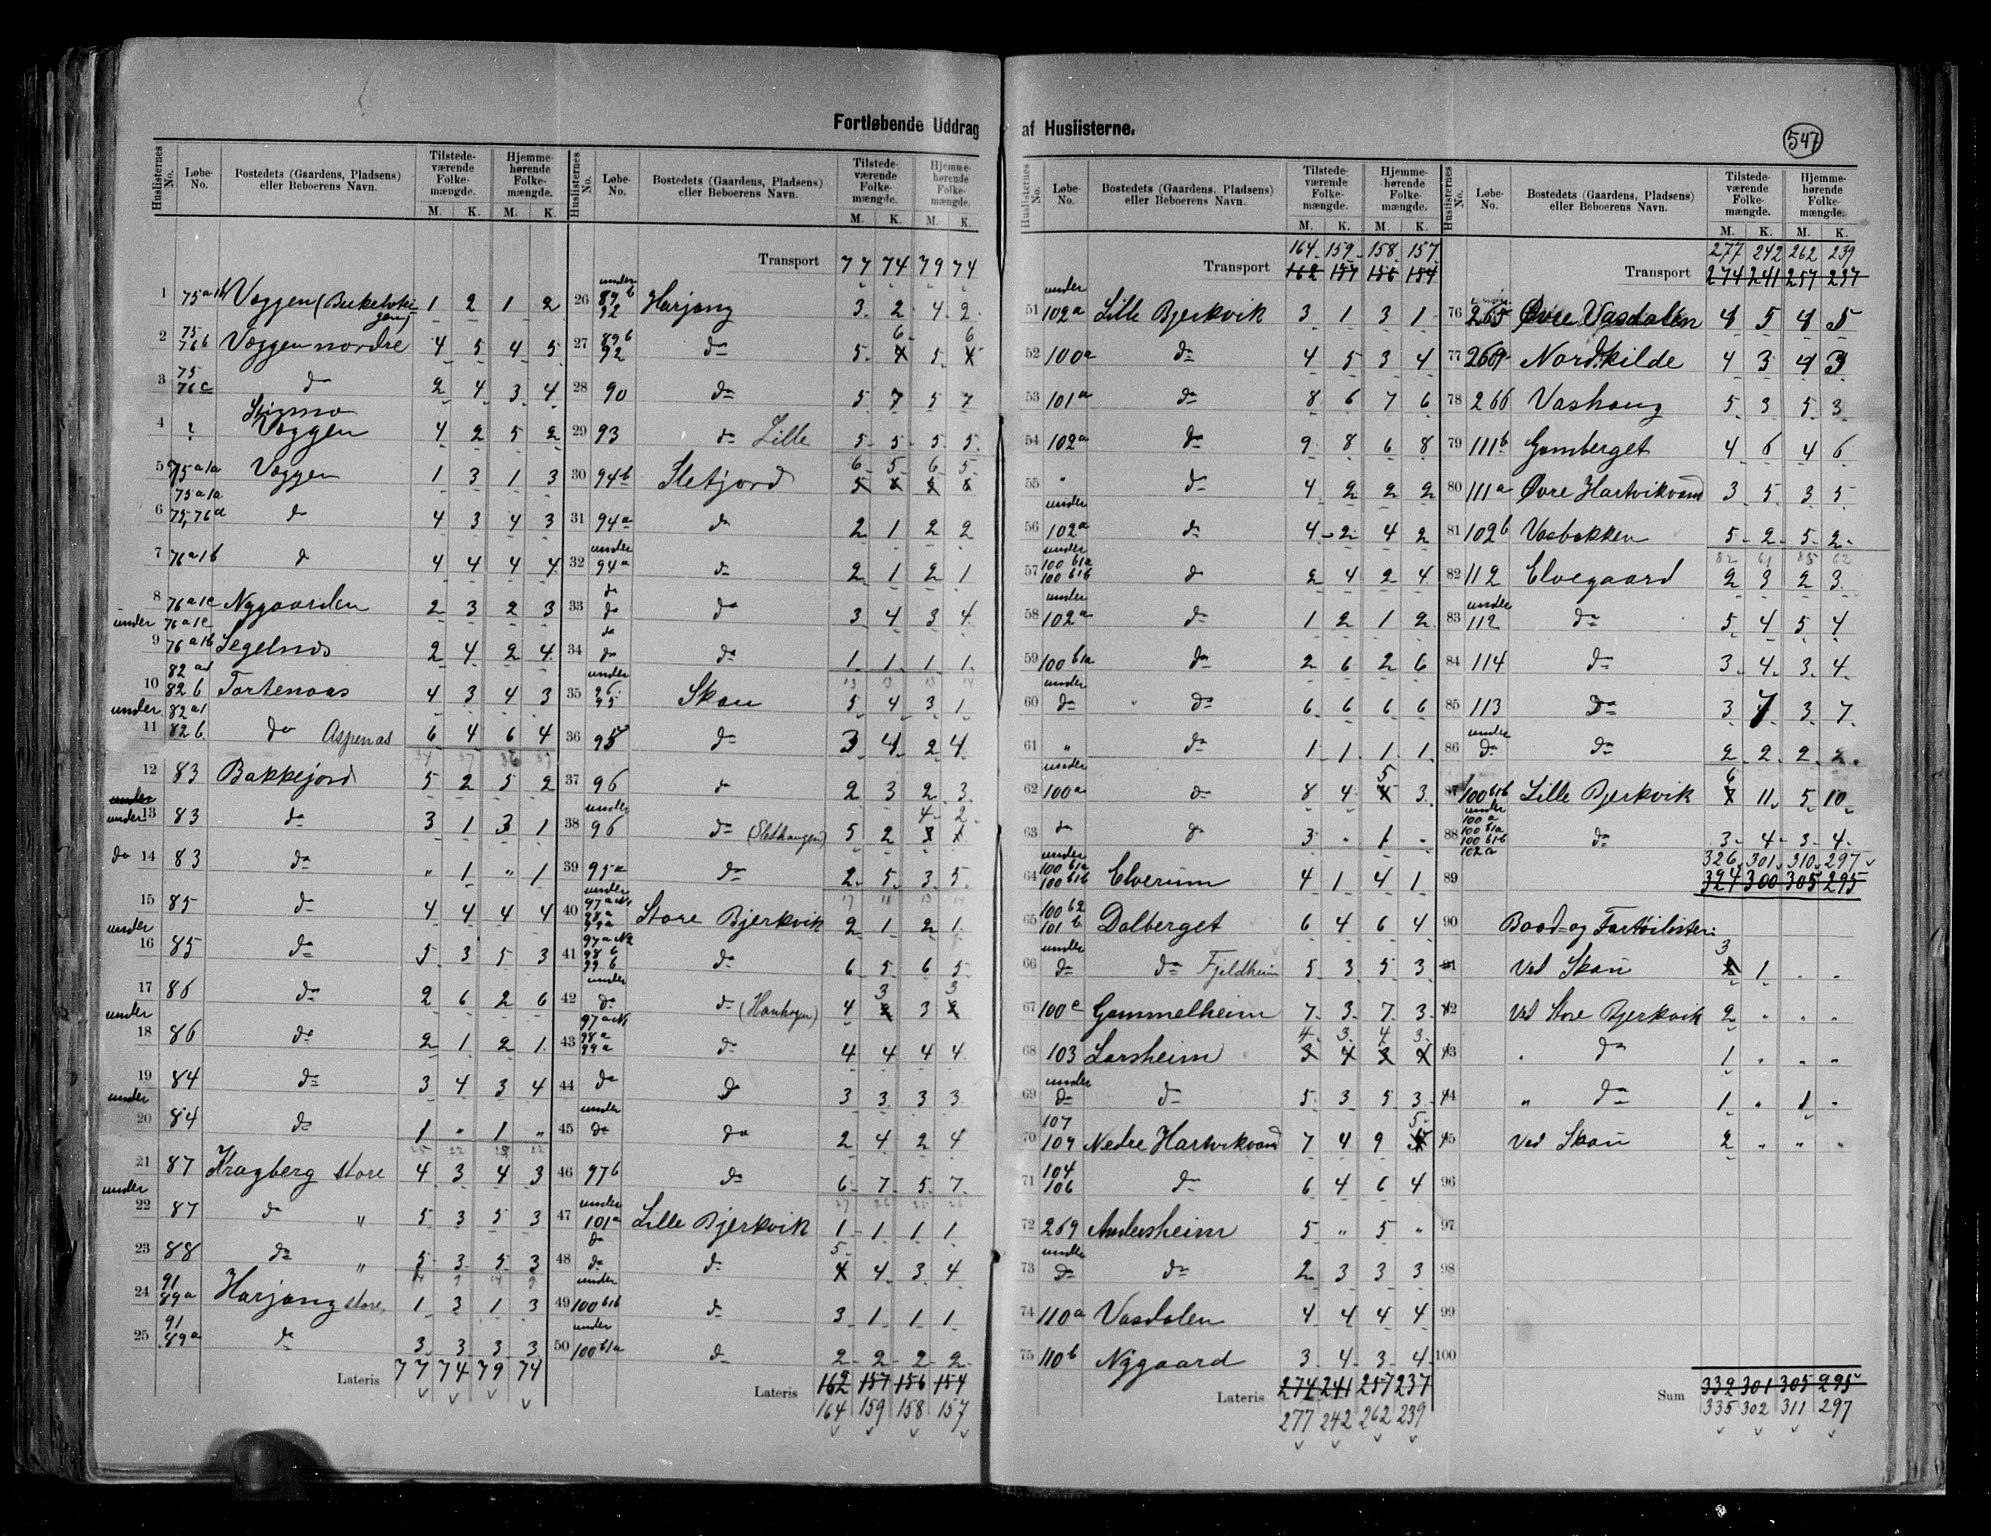 Fortløbende Uddrag af Huslisterne.
547
Huslisternes No. | Løbe-No. | Bostedets (Gaardens, Pladsens) eller Beboerens Navn. | Tilstedeværende Folkemængde. M. K. | Hjemmehørende Folkemængde. M. K.
1 75 a 1b Vaggen (Birkelvhei- 1 2 1 2
2 75 76 b Vaggen nordre 4 5 4 5
3 75 76 c do 2 4 3 4
4 ? Vaggen 4 2 5 2
5 75 a 1a Vaggen 1 3 1 3
6 75 a 1a 75, 76 d do 4 3 4 3
7 76 a 1b do 4 4 4 4
8 76 a 1c Nygaarden 2 3 2 3
9 under 76 a 1c 76 a 1b Segelnæs 2 4 2 4
10 82 a 1 82 b Tortenaas 4 3 4 3
11 under 82 a 1 82 b do Aspenas 6 4 6 4
12 83 Bakkejord 5 2 5 2
13 under 83 do 3 1 3 1
14 do 83 do " 1 " 1
15 85 do 4 4 4 4
16 under 85 do 5 3 5 3
17 86 do 2 6 2 6
18 under 86 do 2 1 2 1
19 84 do 3 4 3 4
20 under 84 do 1 " 1 "
21 87 Kragberg store 4 3 4 3
22 under 87 do " 5 3 5 3
23 88 do " 5 3 5 3
24 91 89 a Harjang store 1 3 1 3
25 91 89 a do 3 3 3 3
Lateris 77 74 79 74
Transport 77 74 79 74
26 under 89 b 92 Harjang 3 2 4 2
27 89 b 92 do 5 6 5 6
28 90 do 5 7 5 7
29 93 do Lille 5 5 5 5
30 94 b Sletjord 6 5 6 5
31 94 a do 2 1 2 2
32 under 94 a do 2 1 2 1
33 do do do 3 4 3 4
34 do do do 1 1 1 1
35 under 96 95 Skou 5 4 3 1
36 95 do 3 4 2 4
37 96 do 2 3 2 3
38 under 96 do (Slethaugen) 5 2 4 2
39 95 a do 2 5 3 5
40 under 97 a No 1 98 a 99 a Store Bjerkvik 2 1 2 1
41 97 a No 2 98 b 99 b do 6 5 6 5
42 under do do (Hanhogen) 4 3 3 3
43 97 a No 1 98 a 99 a do 4 4 4 4
44 do do 3 3 3 3
45 under do do 2 4 2 4
46 97 b do 6 7 5 7
47 under 101 a Lille Bjerkvik 1 1 1 1
48 do do do 5 4 3 4
49 under 100 b 1b do 3 1 1 1
50 under 100 b 1a do 2 2 2 2
Lateris 162 157 156 154
164 159 158 157
164 159 158 157
Transport 162 157 156 154
51 under 102 a Lille Bjerkvik 3 1 3 1
52 100 a do 4 5 3 4
53 101 a do 8 6 7 6
54 102 a do 9 8 6 8
55 " do 4 2 2 2
56 under 102 a do 4 2 4 2
57 under 100 b 1a 100 b 1b do 2 4 2 4
58 under 102 a do 1 2 1 2
59 100 b 1a do 2 6 2 6
60 under do " do 6 6 6 6
61 " do 1 1 1 1
62 under 100 a do 8 4 5 3
63 do do 3 " 1 "
64 under 100 b 1a 100 b 1b Elverum 4 1 4 1
65 100 b 2 101 b Dalberget 6 4 6 4
66 under do do Fjeldheim 5 3 5 3
67 100 c Gammelheim 7 3 7 3
68 103 Larsheim 4 3 4 3
69 under do do 5 3 5 3
70 107 109 Nedre Hartvikvand 7 4 9 5
71 104 106 do 6 4 6 4
72 269 Andersheim 5 " 5 "
73 under do do 2 3 3 3
74 110 a Vasdalen 4 4 4 4
75 110 b Nygaard 3 4 3 4
Lateris 274 241 257 237
277 242 262 239
277 242 262 239
Transport 274 241 257 237
76 265 Øvre Vasdalen 4 5 4 5
77 269 Nordkilde 4 3 4 3
78 266 Vashaug 5 3 5 3
79 111 b Gamberget 4 6 4 6
80 111 a Øvre Hartvikvand 3 5 3 5
81 102 b Vasbakken 5 2 5 2
82 112 Elvegaard 2 3 2 3
83 under 112 do 5 4 5 4
84 114 do 3 4 3 4
85 113 do 3 7 3 7
86 under do do 2 2 2 2
87 100 b 1b Lille Bjerkvik 6 11 5 10
88 under 100 a 100 b 1a 100 b 1b 102 a do 3 4 3 4
326 301 310 297
89 324 300 305 295
90 Baad- og Fartøilister:
91 Ved Skou 3 1 " "
92 Ved Store Bjerkvik 2 " " "
93 " do 1 " " "
94 " do 1 " 1 "
95 Ved Skou 2 " " "
96
97
98
99
100
Sum 332 301 305 295
335 302 311 297